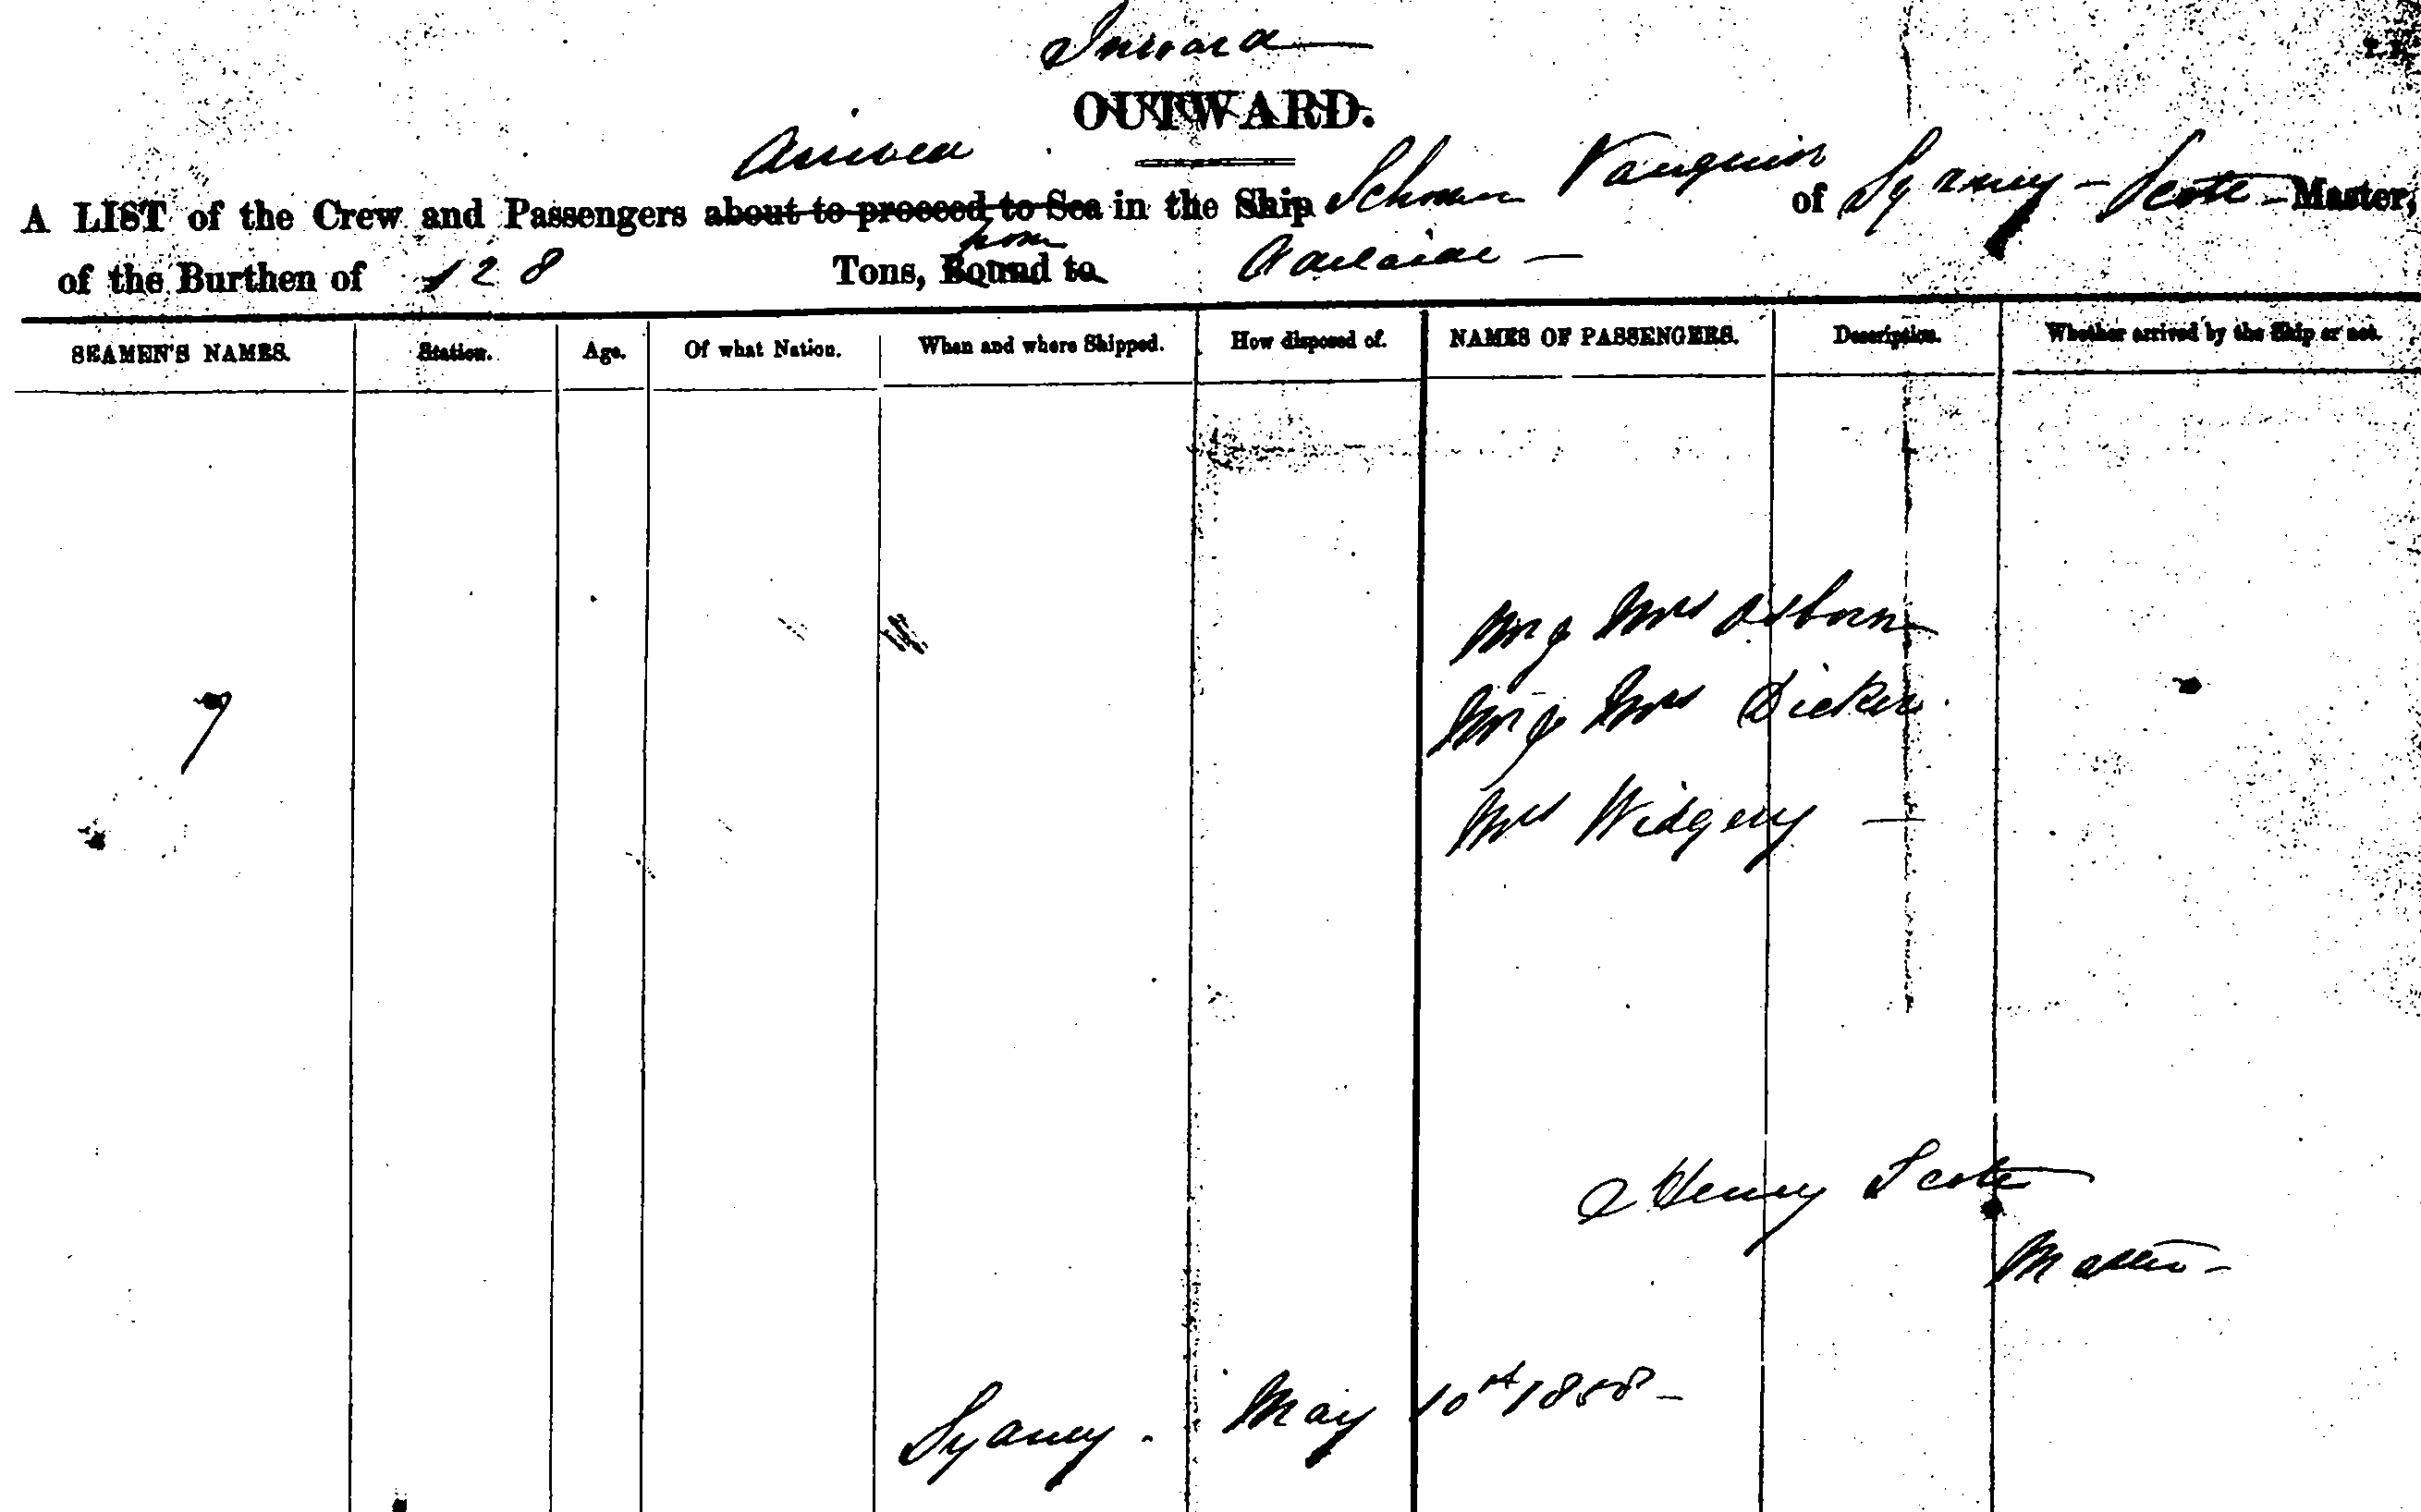 Inward
OUTWARD.
Arrived
A LIST of the Crew and Passengers about to proceed to Sea in the Ship Schooner Vanquish of Sydney - Scott - Master,
from
of the Burthen of 128 Tons, Bound to Adelaide -
SEAMEN'S NAMES. Station. Age. Of what Nation. When and where Shipped. How disposed of. NAMES OF PASSENGERS. Description. Whether arrived by the Ship or not.
Mr & Mrs Osborn
7 Mr & Mrs Dicker
Mrs Widgery -
Henry Scott
Master -
Sydney. May 10th 1858 -